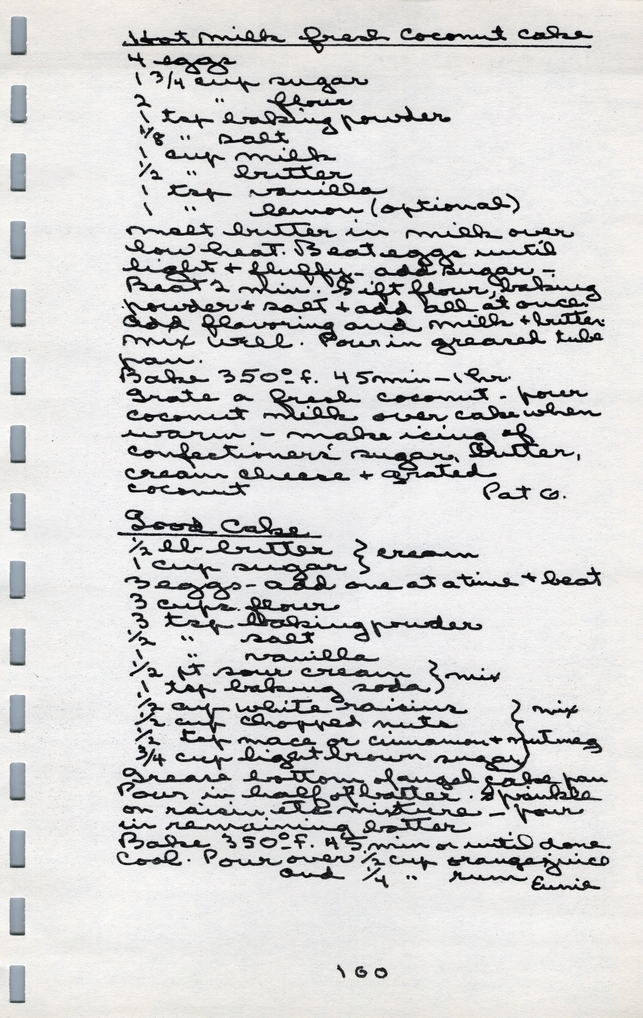 Hot Milk fresh Coconut Cake
4 eggs
1 3/4 cup sugar
2 " flour
1 tsp baking powder
1/8 " salt
1 cup milk
1/2 " butter
1 tsp vanilla
1 " lemon (optional)
Melt butter in milk over
low heat. Beat eggs until
light + fluffy - add sugar -
Beat 2 min. Sift flour, baking
powder + salt + add all at once.
Add flavoring and milk + butter.
Mix well. Pour in greased tube
pan.
Bake 350° f. 45 min - 1 hr.
Grate a fresh coconut - pour
coconut milk over cake when
warm - make icing of
confectioners' sugar, butter,
cream cheese + grated
coconut Pat G.
Good Cake
1/2 lb butter } cream
1 cup sugar }
3 eggs - add one at a time + beat
3 cups flour
3 tsp baking powder
1/2 " salt
1 " vanilla
1/2 pt sour cream } mix
1 tsp baking soda }
1/2 cup white raisins } mix
1/2 cup chopped nuts
1/2 tsp mace or cinnamon + nutmeg
3/4 cup light brown sugar }
Grease bottom of angel cake pan
Pour in half of batter. Sprinkle
on raisin etc mixture - pour
in remaining batter
Bake 350° f. 45 min or until done
Cool. Pour over 1/2 cup orange juice
and 1/4 " rum Eunie
160